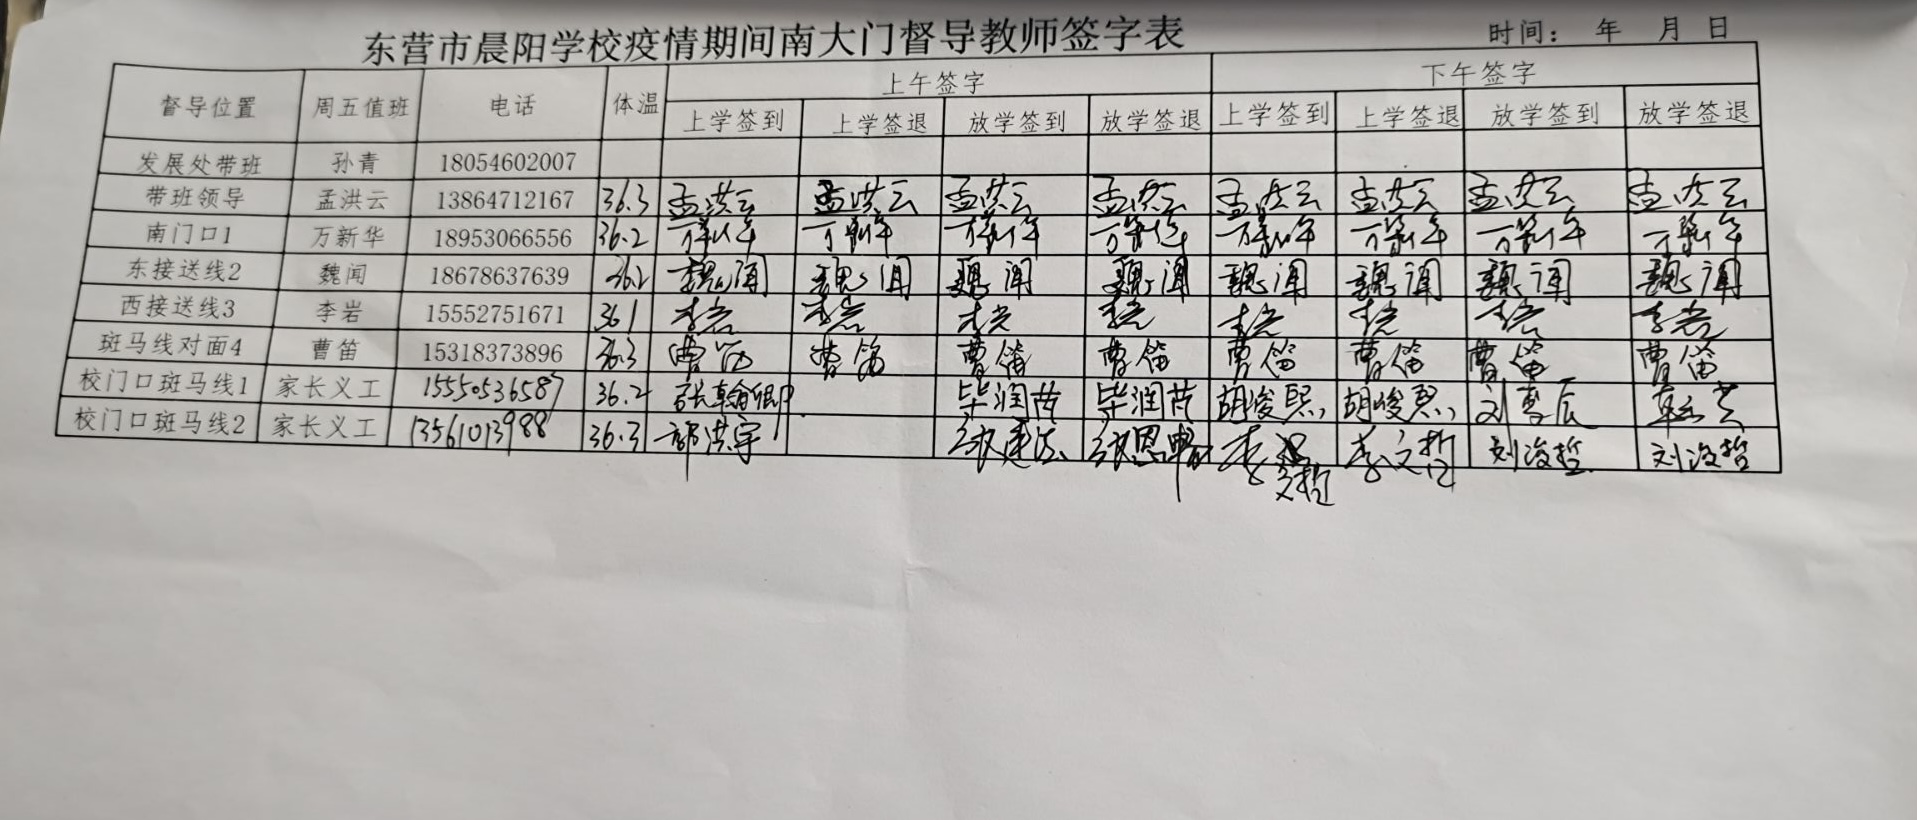 东营市晨阳学校疫情期间南大门督导教师签字表 时间: 年 月 日
督导位置 周五值班 电话 体温 上午签字 下午签字
上学签到 上学签退 放学签到 放学签退 上学签到 上学签退 放学签到 放学签退
发展处带班 孙青 18054602007
带班领导 孟洪云 13864712167 36.3 孟洪云 孟洪云 孟洪云 孟洪云 孟洪云 孟洪云 孟洪云 孟洪云
南门口1 万新华 18953066556 36.2 万新华 万新华 万新华 万新华 万新华 万新华 万新华 万新华
东接送线2 魏闻 18678637639 36.2 魏闻 魏闻 魏闻 魏闻 魏闻 魏闻 魏闻 魏闻
西接送线3 李岩 15552751671 36.1 李岩 李岩 李岩 李岩 李岩 李岩 李岩 李岩
斑马线对面4 曹笛 15318373896 36.3 曹笛 曹笛 曹笛 曹笛 曹笛 曹笛 曹笛 曹笛
校门口斑马线1 家长义工 15550536587 36.2 毕润茁 毕润茁 胡峻熙 胡峻熙
校门口斑马线2 家长义工 13561013988 36.3 郭洪宇 李文哲 李文哲 刘浚哲 刘浚哲